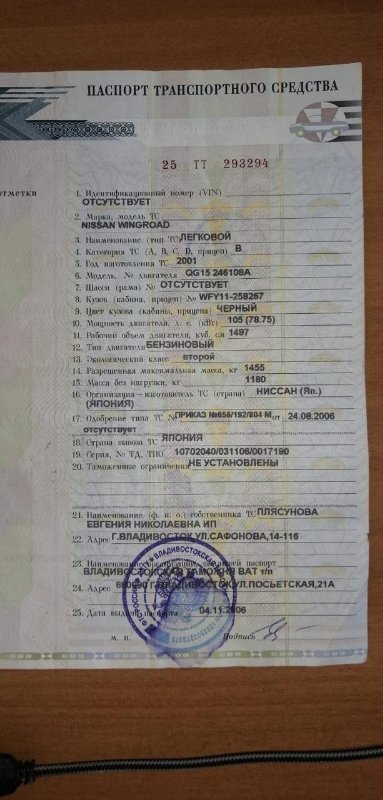 ПАСПОРТ ТРАНСПОРТНОГО СРЕДСТВА
25 ТТ 293294
отметки
1. Идентификационный номер (VIN)
ОТСУТСТВУЕТ
2. Марка, модель ТС
NISSAN WINGROAD
3. Наименование (тип ТС) ЛЕГКОВОЙ
4. Категория ТС (А, В, С, D, прицеп) В
5. Год изготовления ТС 2001
6. Модель, № двигателя QG15 246108A
7. Шасси (рама) № ОТСУТСТВУЕТ
8. Кузов (кабина, прицеп) № WFY11-258267
9. Цвет кузова (кабины, прицепа) ЧЕРНЫЙ
10. Мощность двигателя, л. с. (кВт) 105 (78.75)
11. Рабочий объем двигателя, куб. см 1497
12. Тип двигателя БЕНЗИНОВЫЙ
13. Экологический класс второй
14. Разрешенная максимальная масса, кг 1455
15. Масса без нагрузки, кг 1180
16. Организация – изготовитель ТС (страна) НИССАН (Яп.)
(ЯПОНИЯ)
17. Одобрение типа ТС № ПРИКАЗ №656/192/804 М от 24.08.2006
отсутствует
18. Страна вывоза ТС ЯПОНИЯ
19. Серия, № ТД, ТПО 10702040/031106/0017190
20. Таможенные ограничения НЕ УСТАНОВЛЕНЫ
21. Наименование (ф. и. о.) собственника ТС ПЛЯСУНОВА
ЕВГЕНИЯ НИКОЛАЕВНА ИП
22. Адрес Г.ВЛАДИВОСТОК УЛ.САФОНОВА,14-116
23. Наименование организации, выдавшей паспорт
ВЛАДИВОСТОКСКАЯ ТАМОЖНЯ ВАТ т/п
24. Адрес Г.ВЛАДИВОСТОК УЛ.ПОСЬЕТСКАЯ,21А
25. Дата выдачи паспорта 04.11.2006
М. п. Подпись